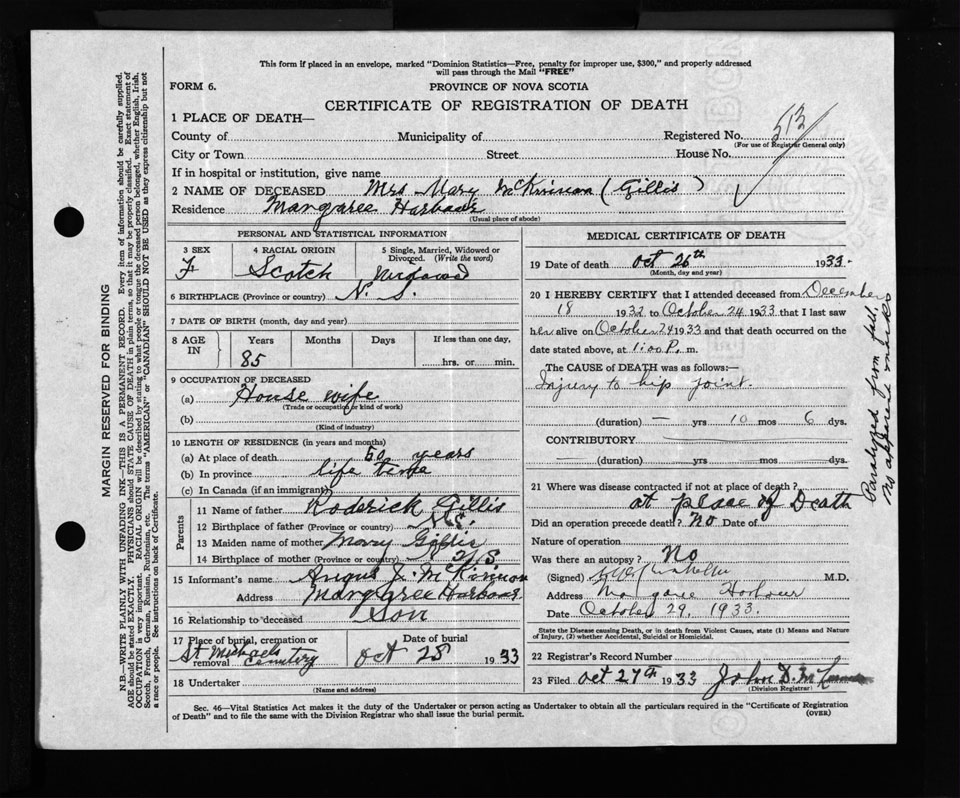 This form if placed in an envelope, marked "Dominion Statistics—Free, penalty for improper use, $300," and properly addressed
will pass through the Mail "FREE"
FORM 6.
PROVINCE OF NOVA SCOTIA
CERTIFICATE OF REGISTRATION OF DEATH
1 PLACE OF DEATH—
County of Municipality of Registered No. 513
(For use of Registrar General only)
City or Town Street House No.
If in hospital or institution, give name
2 NAME OF DECEASED Mrs Mary McKinnon (Gillis)
Residence Margaree Harbour
(Usual place of abode)
PERSONAL AND STATISTICAL INFORMATION
3 SEX 4 RACIAL ORIGIN 5 Single, Married, Widowed or
Divorced. (Write the word)
F Scotch Widowed
6 BIRTHPLACE (Province or country) N. S.
7 DATE OF BIRTH (month, day and year)
8 AGE IN Years Months Days If less than one day,
85 hrs. or min.
9 OCCUPATION OF DECEASED
(a) House wife
(Trade or occupation or kind of work)
(b)
(Kind of industry)
10 LENGTH OF RESIDENCE (in years and months)
(a) At place of death 60 years
(b) In province life time
(c) In Canada (if an immigrant)
Parents
11 Name of father Roderick Gillis
12 Birthplace of father (Province or country) N.S.
13 Maiden name of mother Mary Gillis
14 Birthplace of mother (Province or country) N.S.
15 Informant's name Angus J. McKinnon
Address Margaree Harbour
16 Relationship to deceased Son
17 Place of burial, cremation or removal Date of burial
St Michaels Cemetery Oct 28 1933
18 Undertaker
(Name and address)
MEDICAL CERTIFICATE OF DEATH
19 Date of death Oct 26th 1933
(Month, day and year)
20 I HEREBY CERTIFY that I attended deceased from December
18 1932 to October 24 1933 that I last saw
her alive on October 24 1933 and that death occurred on
date stated above, at 1:00 P. m.
The CAUSE of DEATH was as follows:
Injury to hip joint.
(duration) — yrs 10 mos 6 dys.
CONTRIBUTORY
(duration) yrs. mos. dys.
21 Where was disease contracted if not at place of death?
at place of Death
Did an operation precede death? No Date of
Nature of operation
Was there an autopsy? No
(Signed) M.D.
Address Margaree Harbour
Date October 29, 1933.
State the Disease causing Death, or in death from Violent Causes, state (1) Means and Nature
of Injury, (2) whether Accidental, Suicidal or Homicidal.
22 Registrar's Record Number
23 Filed Oct 27th 1933 John D. McKinnon
(Division Registrar)
Sec. 46—Vital Statistics Act makes it the duty of the Undertaker or person acting as Undertaker to obtain all the particulars required in the "Certificate of Registration
of Death" and to file the same with the Division Registrar who shall issue the burial permit.
(OVER)
Paralyzed from fall.
No apparent marks
MARGIN RESERVED FOR BINDING
N.B.—WRITE PLAINLY WITH UNFADING INK—THIS IS A PERMANENT RECORD. Every item of information should be carefully supplied.
AGE should be stated EXACTLY. PHYSICIANS should STATE CAUSE OF DEATH in plain terms, so that it may be properly classified. Exact statement of
OCCUPATION is very important. RACIAL ORIGIN will be described by stating to what people or tongue the deceased person belonged, whether English, Irish,
Scotch, French, German, Russian, Ruthenian, etc. The terms "AMERICAN" or "CANADIAN" SHOULD NOT BE USED as they express citizenship but not
a race or people. See instructions on back of Certificate.